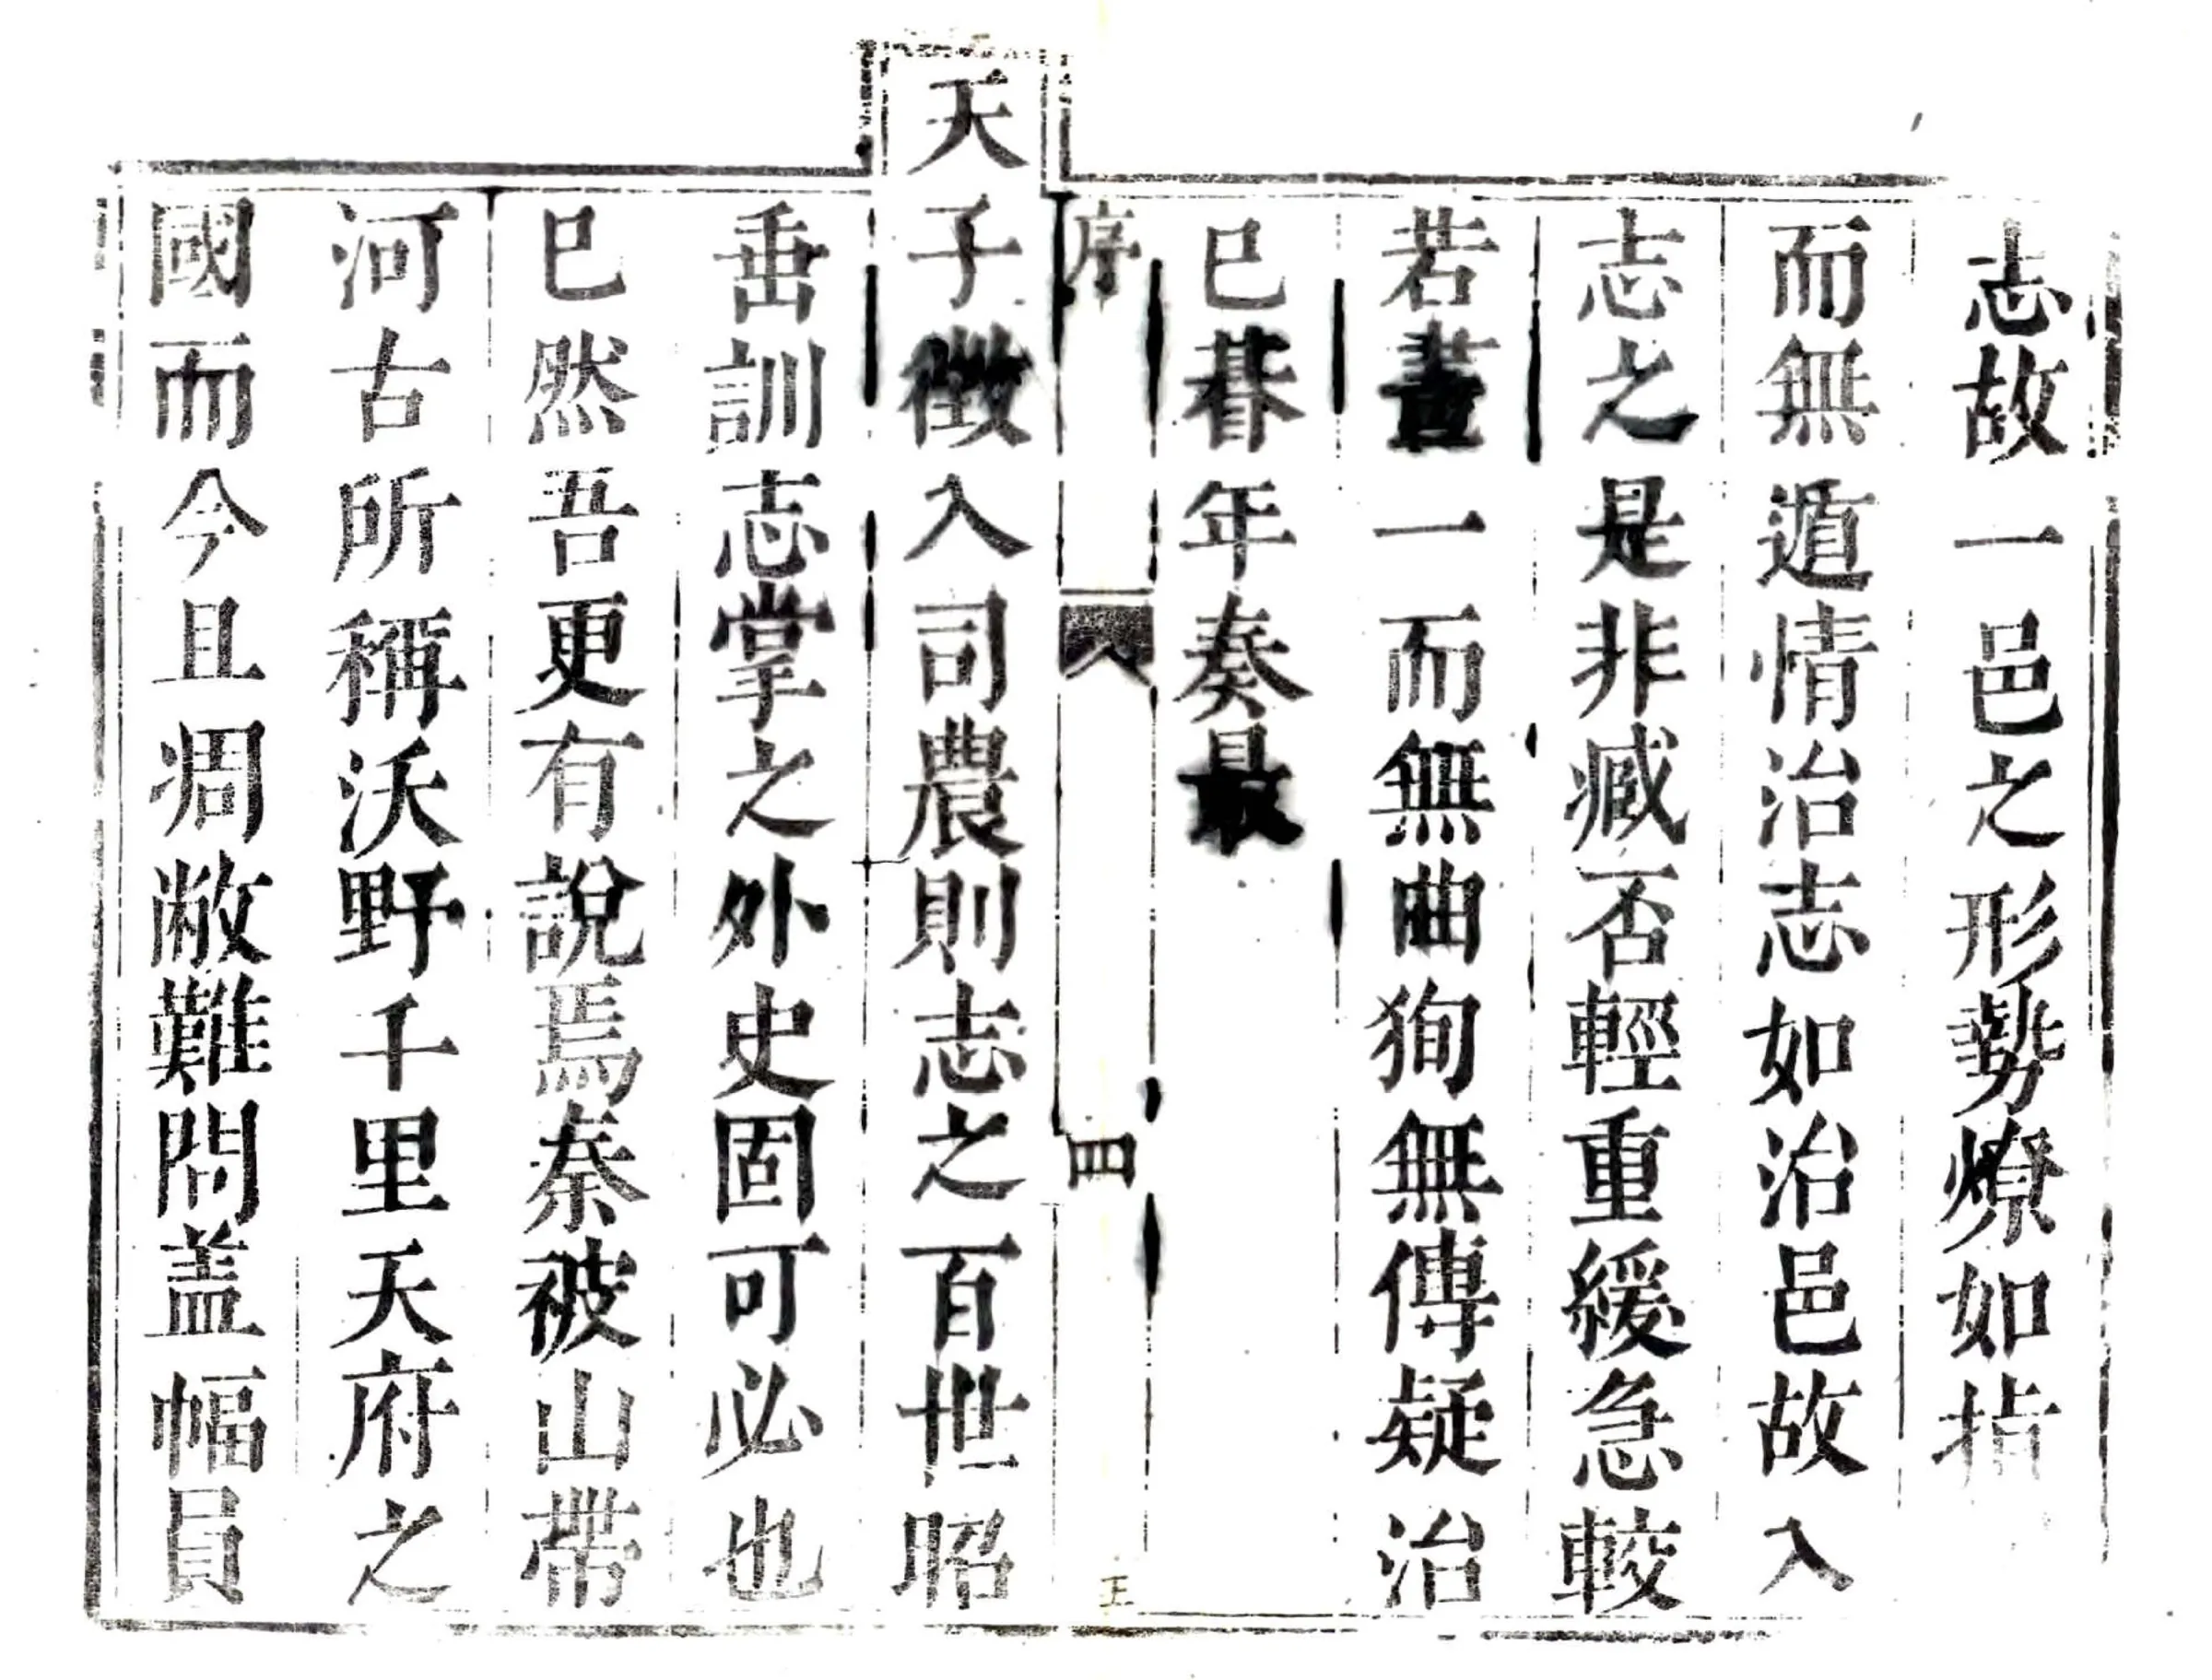 志故一邑之形勢燎如指
而無遁情治志如治邑故入
志之是非臧否輕重緩急較
若畫一而無曲狥無傳疑治
巳朞年奏最
序
四
王
天子徵入司農則志之百世昭
垂訓志掌之外史固可必也
巳然吾更有說焉秦被山帶
河古所稱沃野千里天府之
國而今且凋敝難問盖幅員